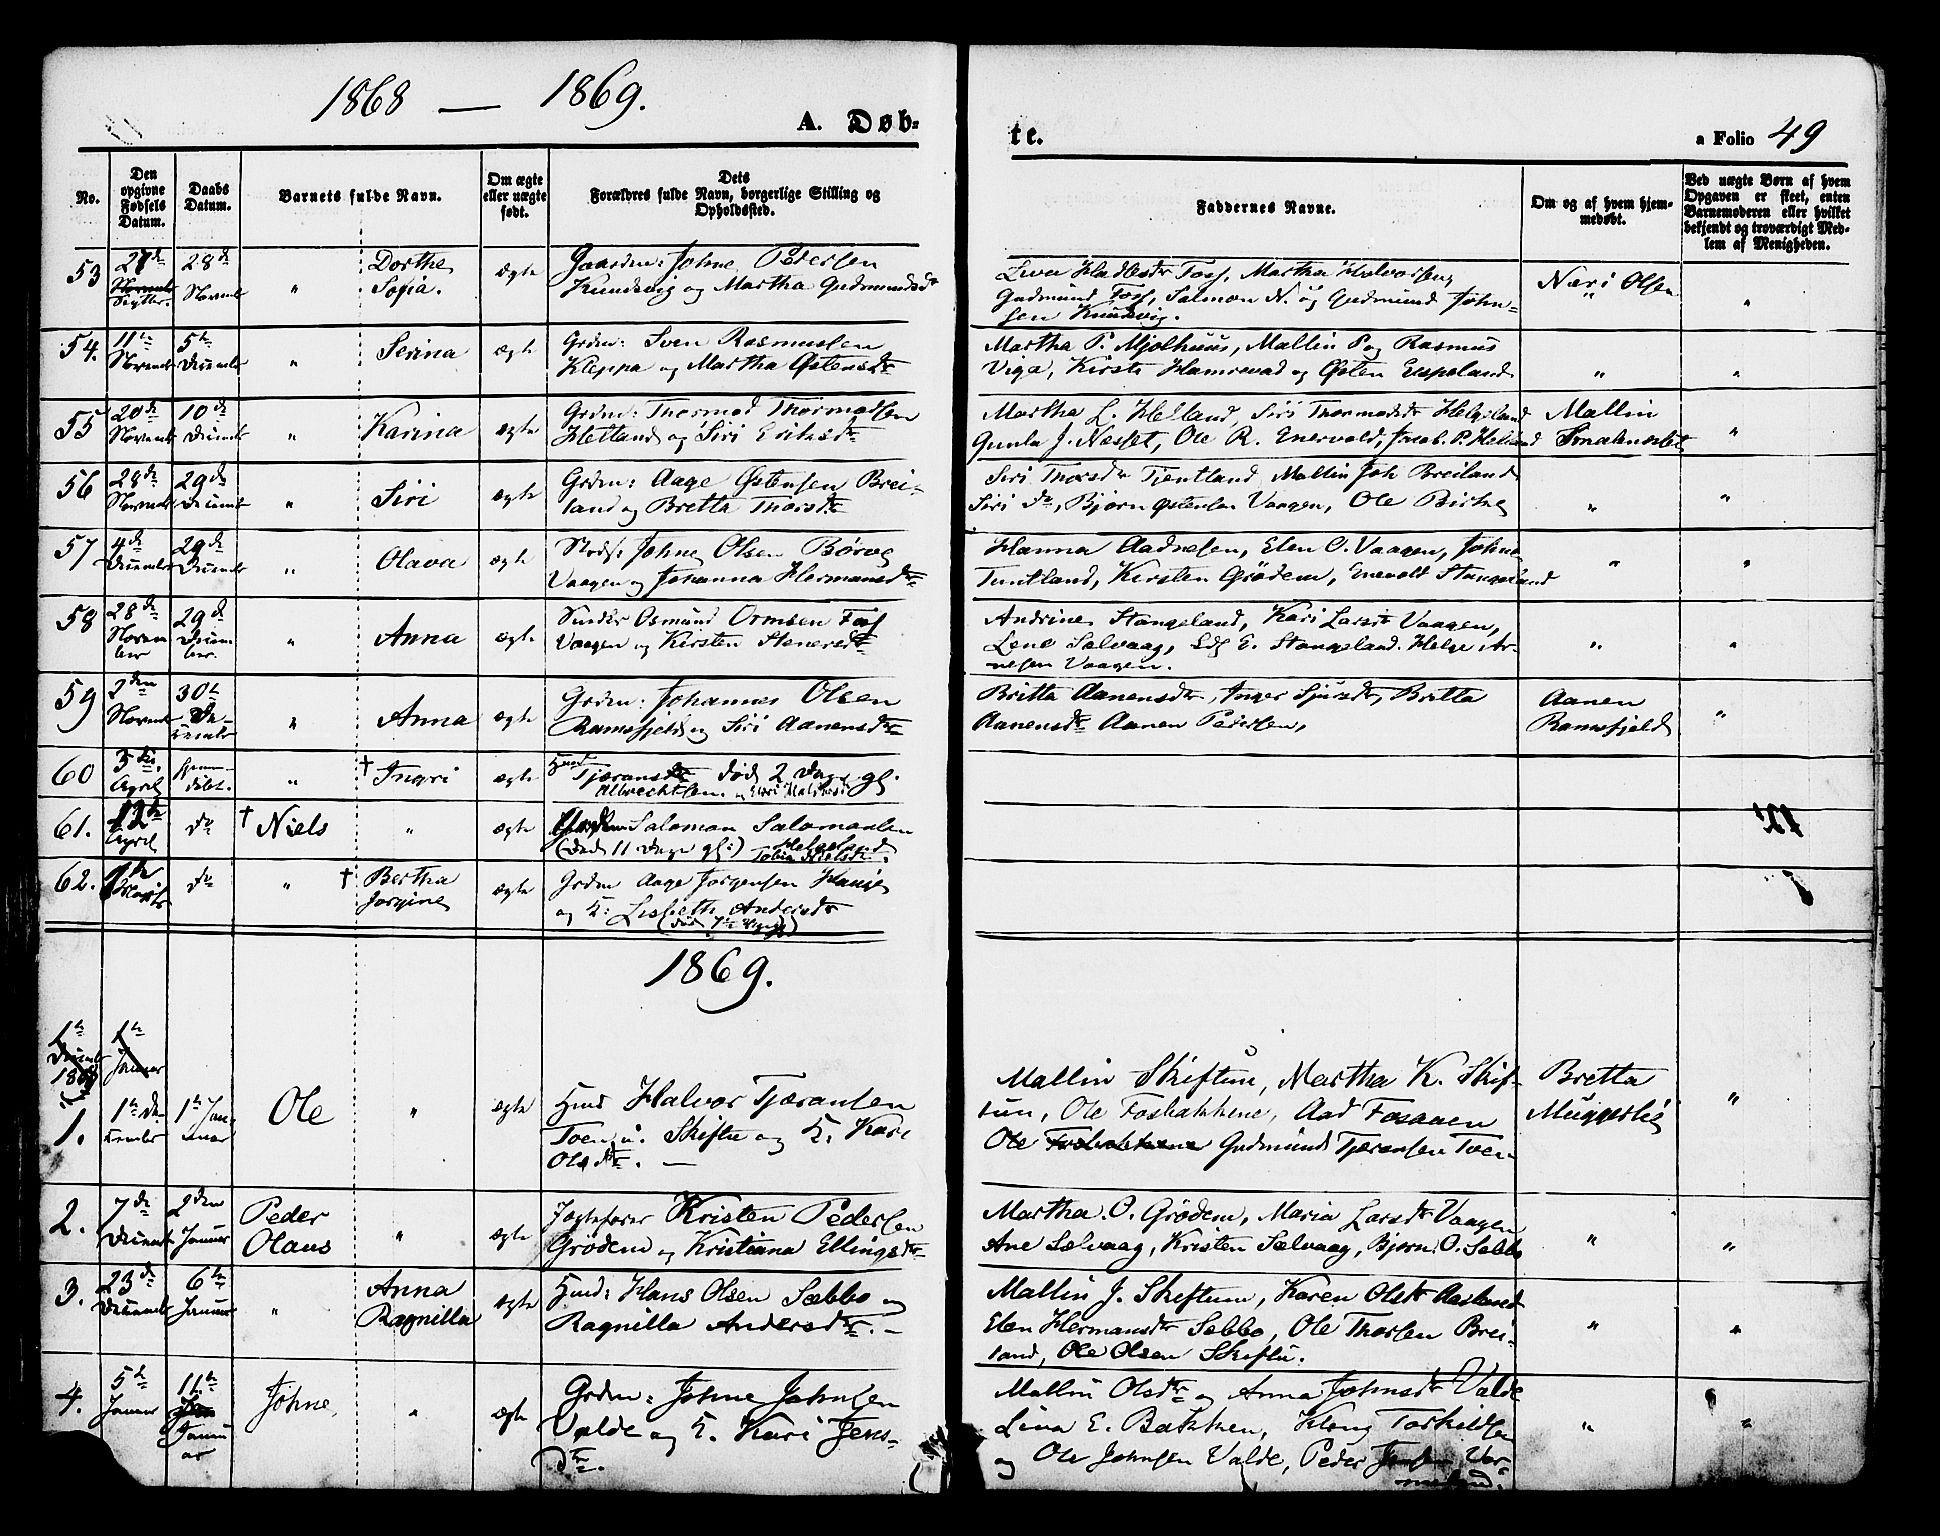 1868 — 1869.
A. Døb-
te.
a Folio 49
No.
Den opgivne Fødsels Datum.
Daabs Datum.
Barnets fulde Navn.
Om ægte eller uægte født.
Dets Forældres fulde Navn, borgerlige Stilling og Opholdssted.
Faddernes Navne.
Om og af hvem hjemmedøbt.
Ved uægte Børn af hvem Opgaven er skeet, enten Barnemoderen eller hvilket bekjendt og troværdigt Medlem af Menigheden.
53 27de 28de Dorthe Sofia. ægte
Gaardm: Johne Pedersen
og Martha Gudmundsdr
Martha Halvorsen,
Gudmund Fosf, Salmon N. og Gudmund John-
sen
Olsen
54. 11te Novemb 5te Decemb " Serina ægte
Grdm: Sven Rasmussen
Kleppa og Martha Østensdr
Martha P. Mjølhuus, Mallin P og Rasmus
Viga, Kirsti Hamrevad og Østen Espeland " "
55 20de Novemb 10de Decemb " Karina ægte
Grdm: Thormod Thormodsen
Hetland og Siri Eriksdr
Martha L. Helland, Siri Thormodsdr Helgeland
Gunla J. Nesset, Ole R. Enervold, Jacob P. Helland
Mallin
"
56 28de Novemb 29de Decemb " Siri ægte
Grdm: Aage Østensen Brei-
land og Bretta Thorsdr
Siri Thorsdr Tjentland, Mallin Joh Breiland
Siri do, Bjørn Østensen Vaagen, Ole Birke " "
57 4de Decemb 29de Decemb " Olava ægte
Johne Olsen Børve
Vaagen og Johanna Hermansdr
Hanna Aadnesen, Elen O. Vaagen, Johne
Tuntland, Kirsten Grødem, Enevold Stangeland " "
58 28de Novem ber 29de Decem ber. " Anna ægte
Osmund Ormsen Fosf
Vaagen og Kirsten Stenersdr
Andrine Stangeland, Kari Larsdr Vaagen,
Lene Sælvaag, E. Stangeland. Helge Ar-
nesen Vaagen. " "
59 2den Novemb 30te De- cember " Anna ægte
Grdm: Johannes Olsen
Ramsfjeld og Siri Aanensdr
Britta Aanensdr, Inger Sjursdr, Britta
Aanensdr Aanen Pedersen,
Aanen
Ramsfjeld
"
60 April " † Ingri ægte
død 2 Dage gl.
Albrechtsen.
61. 12te April do † Niels " ægte
Salomon Salomonsen
Helgeland
(Død 11 Dage gl:)
62. do " † Bertha Jorgine ægte
Grdm Aage Jørgensen Hauje
og K: Lisbeth Andersdr
1869.
1te Decemb 1868 1te Januar
1. 1te De- cember 1te Jan- uar Ole " ægte
Huus Halvor Tjæransen
Toen og K. Kari
Olsdtr. —
Mallin Skiftun, Martha K. Skif-
tun, Ole Fosbakkene, Aad Fosaaen
Ole Fosbakkene Gudmund Tjæransen Toen
Bretta
Muggerlie
"
2. 7de Decemb 2den Januar Peder Olaus " ægte
Kristen Pedersen
Grødem og Kristiana Ellingsdr
Martha O. Grødem, Maria Larsdr Vaagen
Ane Sælvaag, Kristen Sælvaag, Bjørn O. Sæbbø " "
3. 23de Decemb 6te Januar " Anna Ragnilla ægte
Huus: Hans Olsen Sæbbø og
Ragnilla Andersdtr. —
Mallin J. Skiftun, Karen Olsdr
Elen Hermansdr Sæbbø, Ole Thorsen Brei-
land, Ole Olsen Skiftu. " "
4. 5te Januar 11te Janu ar Johne, " ægte
Grdm: Johne Johnsen
Valde og K. Kari Jens-
dtr.
Mallin Olsdtr og Anna Johnsdtr Valde
Lina E. Bakken, Torkildsen
og Ole Johnsen Valde, Peder " "